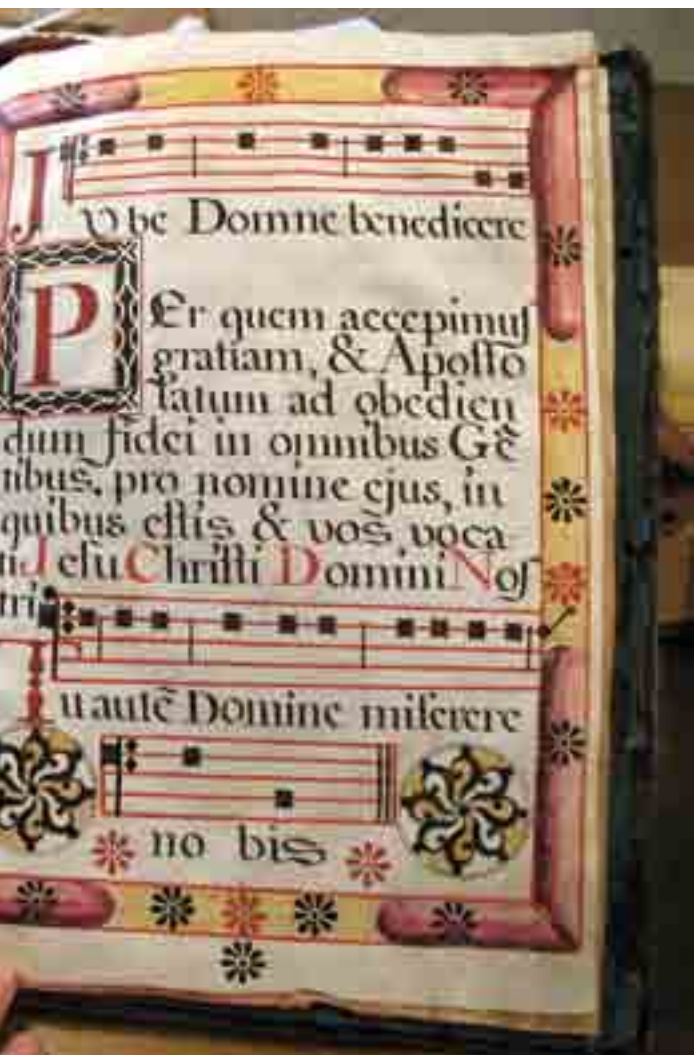 Jube Domne benedicere
PEr quem accepimus
gratiam, & Aposto
latum ad obedien
dum fidei in omnibus Gẽ
tibus, pro nomine ejus, in
quibus estis & vos voca
ti Jesu Christi Domini Nos
tri.
Tu autẽ Domine miserere
no bis